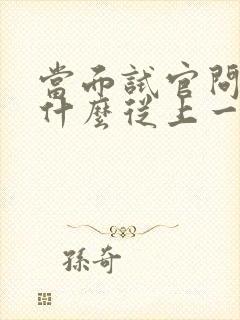 當面試官問
什麼從上一
孫奇